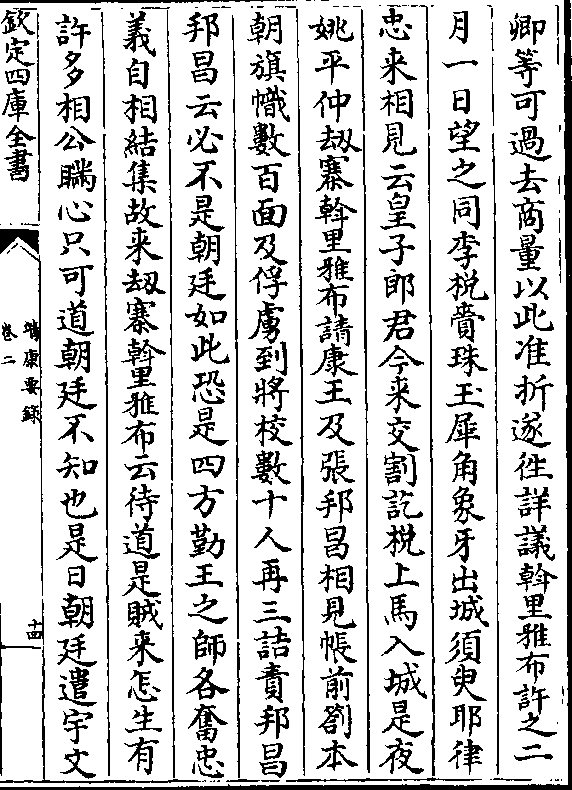 卿等可過去商量以此准折遂徃詳議斡里雅布許之二
月一日望之同李棁賫珠玉犀角象牙出城須臾耶律
忠来相見云皇子郎君今来交割訖棁上馬入城是夜
姚平仲刼寨斡里雅布請康王及張邦昌相見帳前劄本
朝旗幟數百面及俘虜到將校數十人再三詰責邦昌
邦昌云必不是朝廷如此恐是四方勤王之師各奮忠
義自相結集故来刼寨斡里雅布云待道是賊来怎生有
許多相公瞞心只可道朝廷不知也是日朝廷遣宇文
欽定四庫全書
靖康要錄
卷二
十四